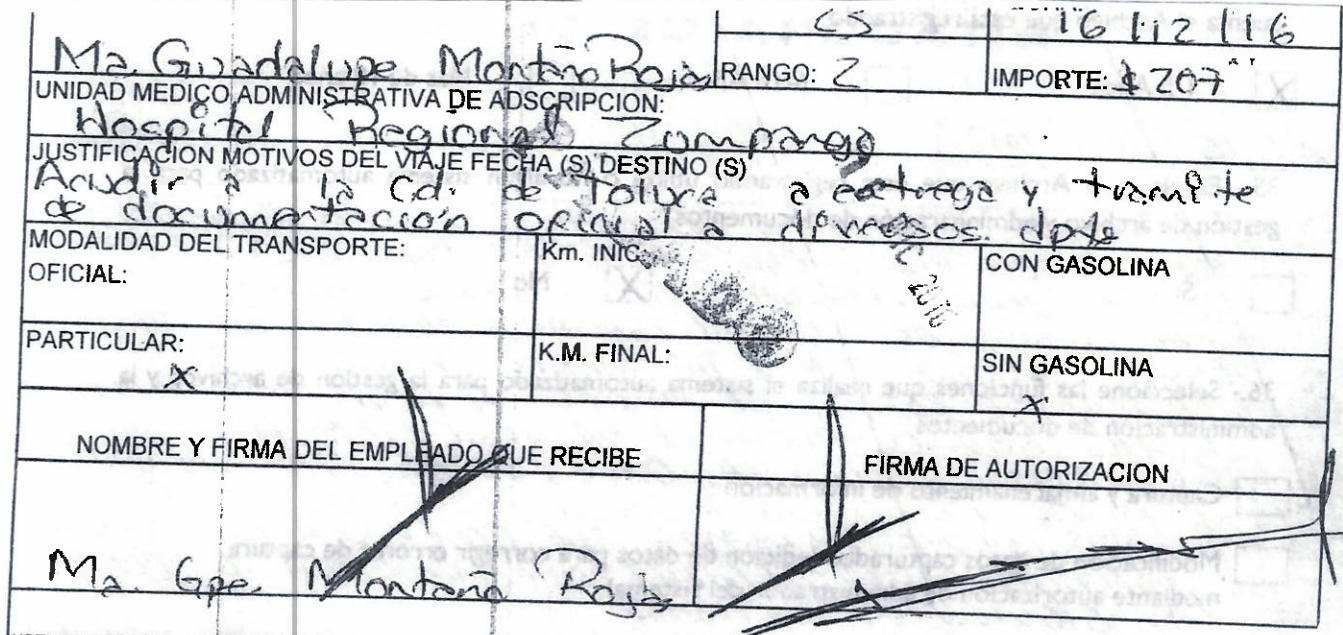 CS 16/12/16
Ma. Guadalupe Montaño Rojas RANGO: 2 IMPORTE: $207
UNIDAD MEDICO ADMINISTRATIVA DE ADSCRIPCION:
Hospital Regional Zumpango
JUSTIFICACION MOTIVOS DEL VIAJE FECHA (S) DESTINO (S)
Acudir a la Cd. de Toluca a entrega y tramite
de documentación oficial a diversos dpto
MODALIDAD DEL TRANSPORTE: Km. INIC CON GASOLINA
OFICIAL:
2016
PARTICULAR: K.M. FINAL: SIN GASOLINA
X X
NOMBRE Y FIRMA DEL EMPLEADO QUE RECIBE FIRMA DE AUTORIZACION
Ma. Gpe. Montaño Rojas